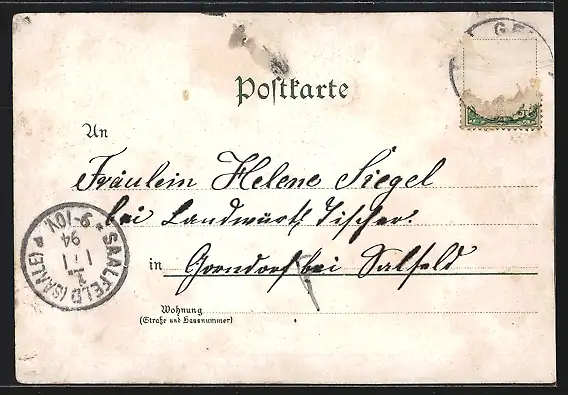 GE
Postkarte
An
Fräulein Helene Siegel
bei Landwürth Tischer.
in Gorndorf bei Salfeld
Wohnung
(Straße und Hausnummer)
SAALFELD (SAALE)
1 1
94
9-10V.